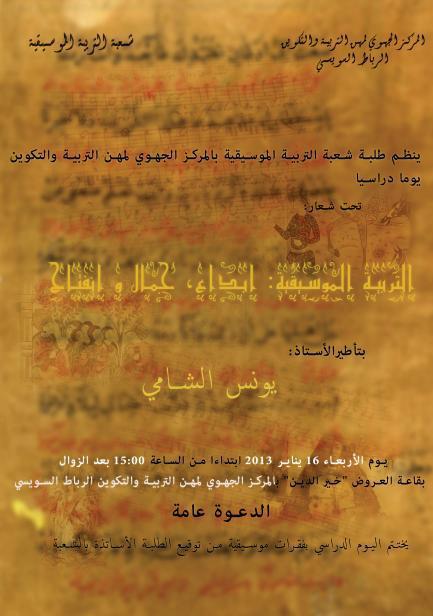 المركز الجهوي لمهن التربية والتكوين
الرباط السويسي
شعبة التربية الموسيقية
ينظم طلبة شعبة التربية الموسيقية بالمركز الجهوي لمهن التربية والتكوين
يوما دراسيا
تحت شعار:
التربية الموسيقية: إبداع، جمال و انفتاح
بتأطيرالأستاذ:
يونس الشامي
يوم الأربعاء 16 يناير 2013 إبتداءا من الساعة 15:00 بعد الزوال
بقاعة العروض "خير الدين" بالمركز الجهوي لمهن التربية والتكوين الرباط السويسي
الدعوة عامة
يختتم اليوم الدراسي بفقرات موسيقية من توقيع الطلبة الأساتذة بالشعبة